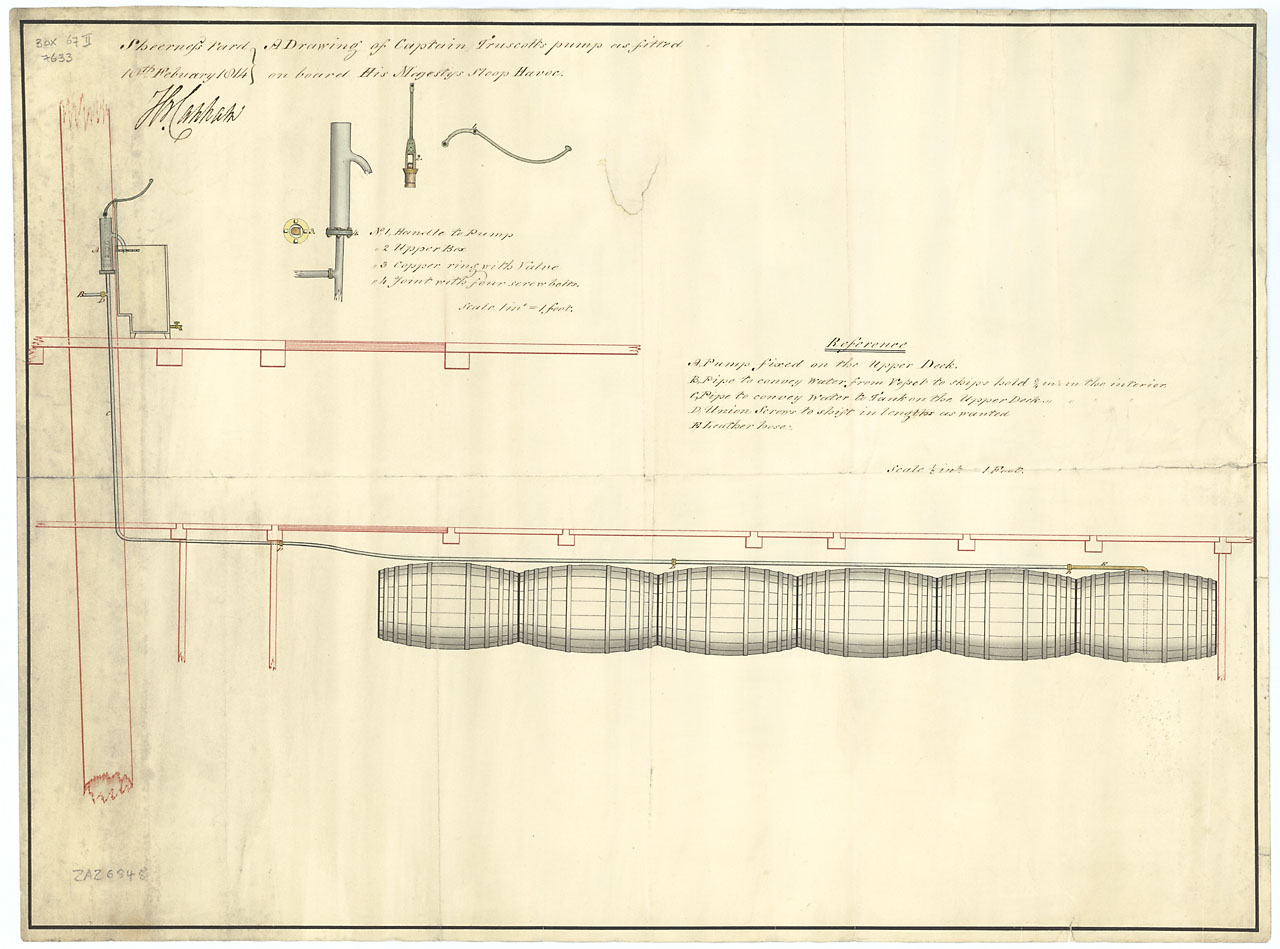 Box 67 II
7633
Sheerness Yard } A Drawing of Captain Truscotts pump as fitted
18th Febuary 1814 } on board His Megestys Sloop Havoc.
N° 1, Handle to Pump
" 2 Upper Box
" 3 Copper ring with Valve
" 4 Joint with four screw bolts.
Scale 1 inh = 1 foot.
Reference
A, Pump fixed on the Upper Deck.
B, Pipe to convey Water from Vessel to ships hold in in the interior
C, Pipe to convey Water to Tank on the Upper Deck "
D, Union Screws to shift in lengths as wanted
E Leather hose.
Scale ½ inh 1 Foot.
A
B
ZAZ6848